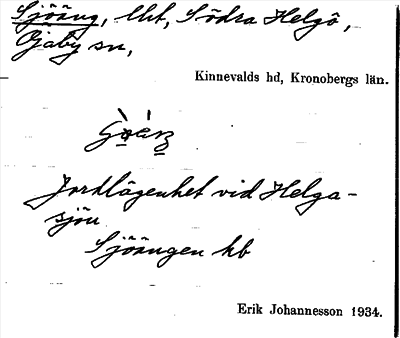 Sjöäng, lht, Södra Helgö,
Öjaby sn,
Kinnevalds hd, Kronobergs län.
Jordlägenhet vid Helga-
sjön
Sjöängen hb
Erik Johannesson 1934.